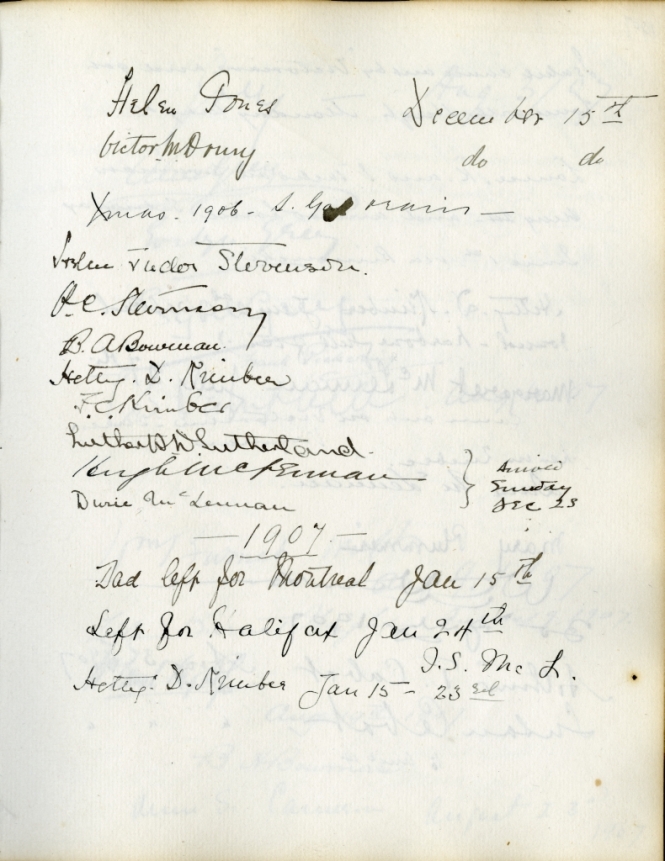 Helen Jones December 15th
Victor M Drury do do
Xmas. 1906. S.
Tudor Stevenson.
H. C. Stevenson
B. A Bowman.
Hetty. D. Kimber
F. C. Kimber
Sutherland.
Hugh McLennan
Durie McLennan
Arrived
Sunday
Dec 23
— 1907 —
Dad left for Montreal Jan 15th
Left for Halifax Jan 24th
J. S. Mc L.
Hetty. D. Kimber Jan 15 - 23rd